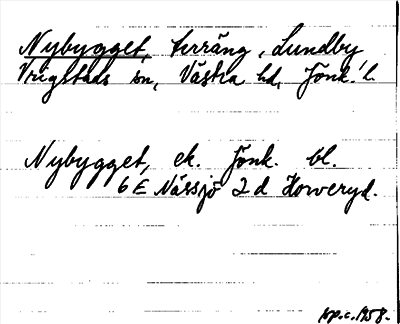 Nybygget, terräng, Lundby
Vrigstads sn, Västra hd, Jönk. l.
Nybygget, ek. Jönk. bl.
6 E Nässjö 2 d Howeryd.
top.c.1958.